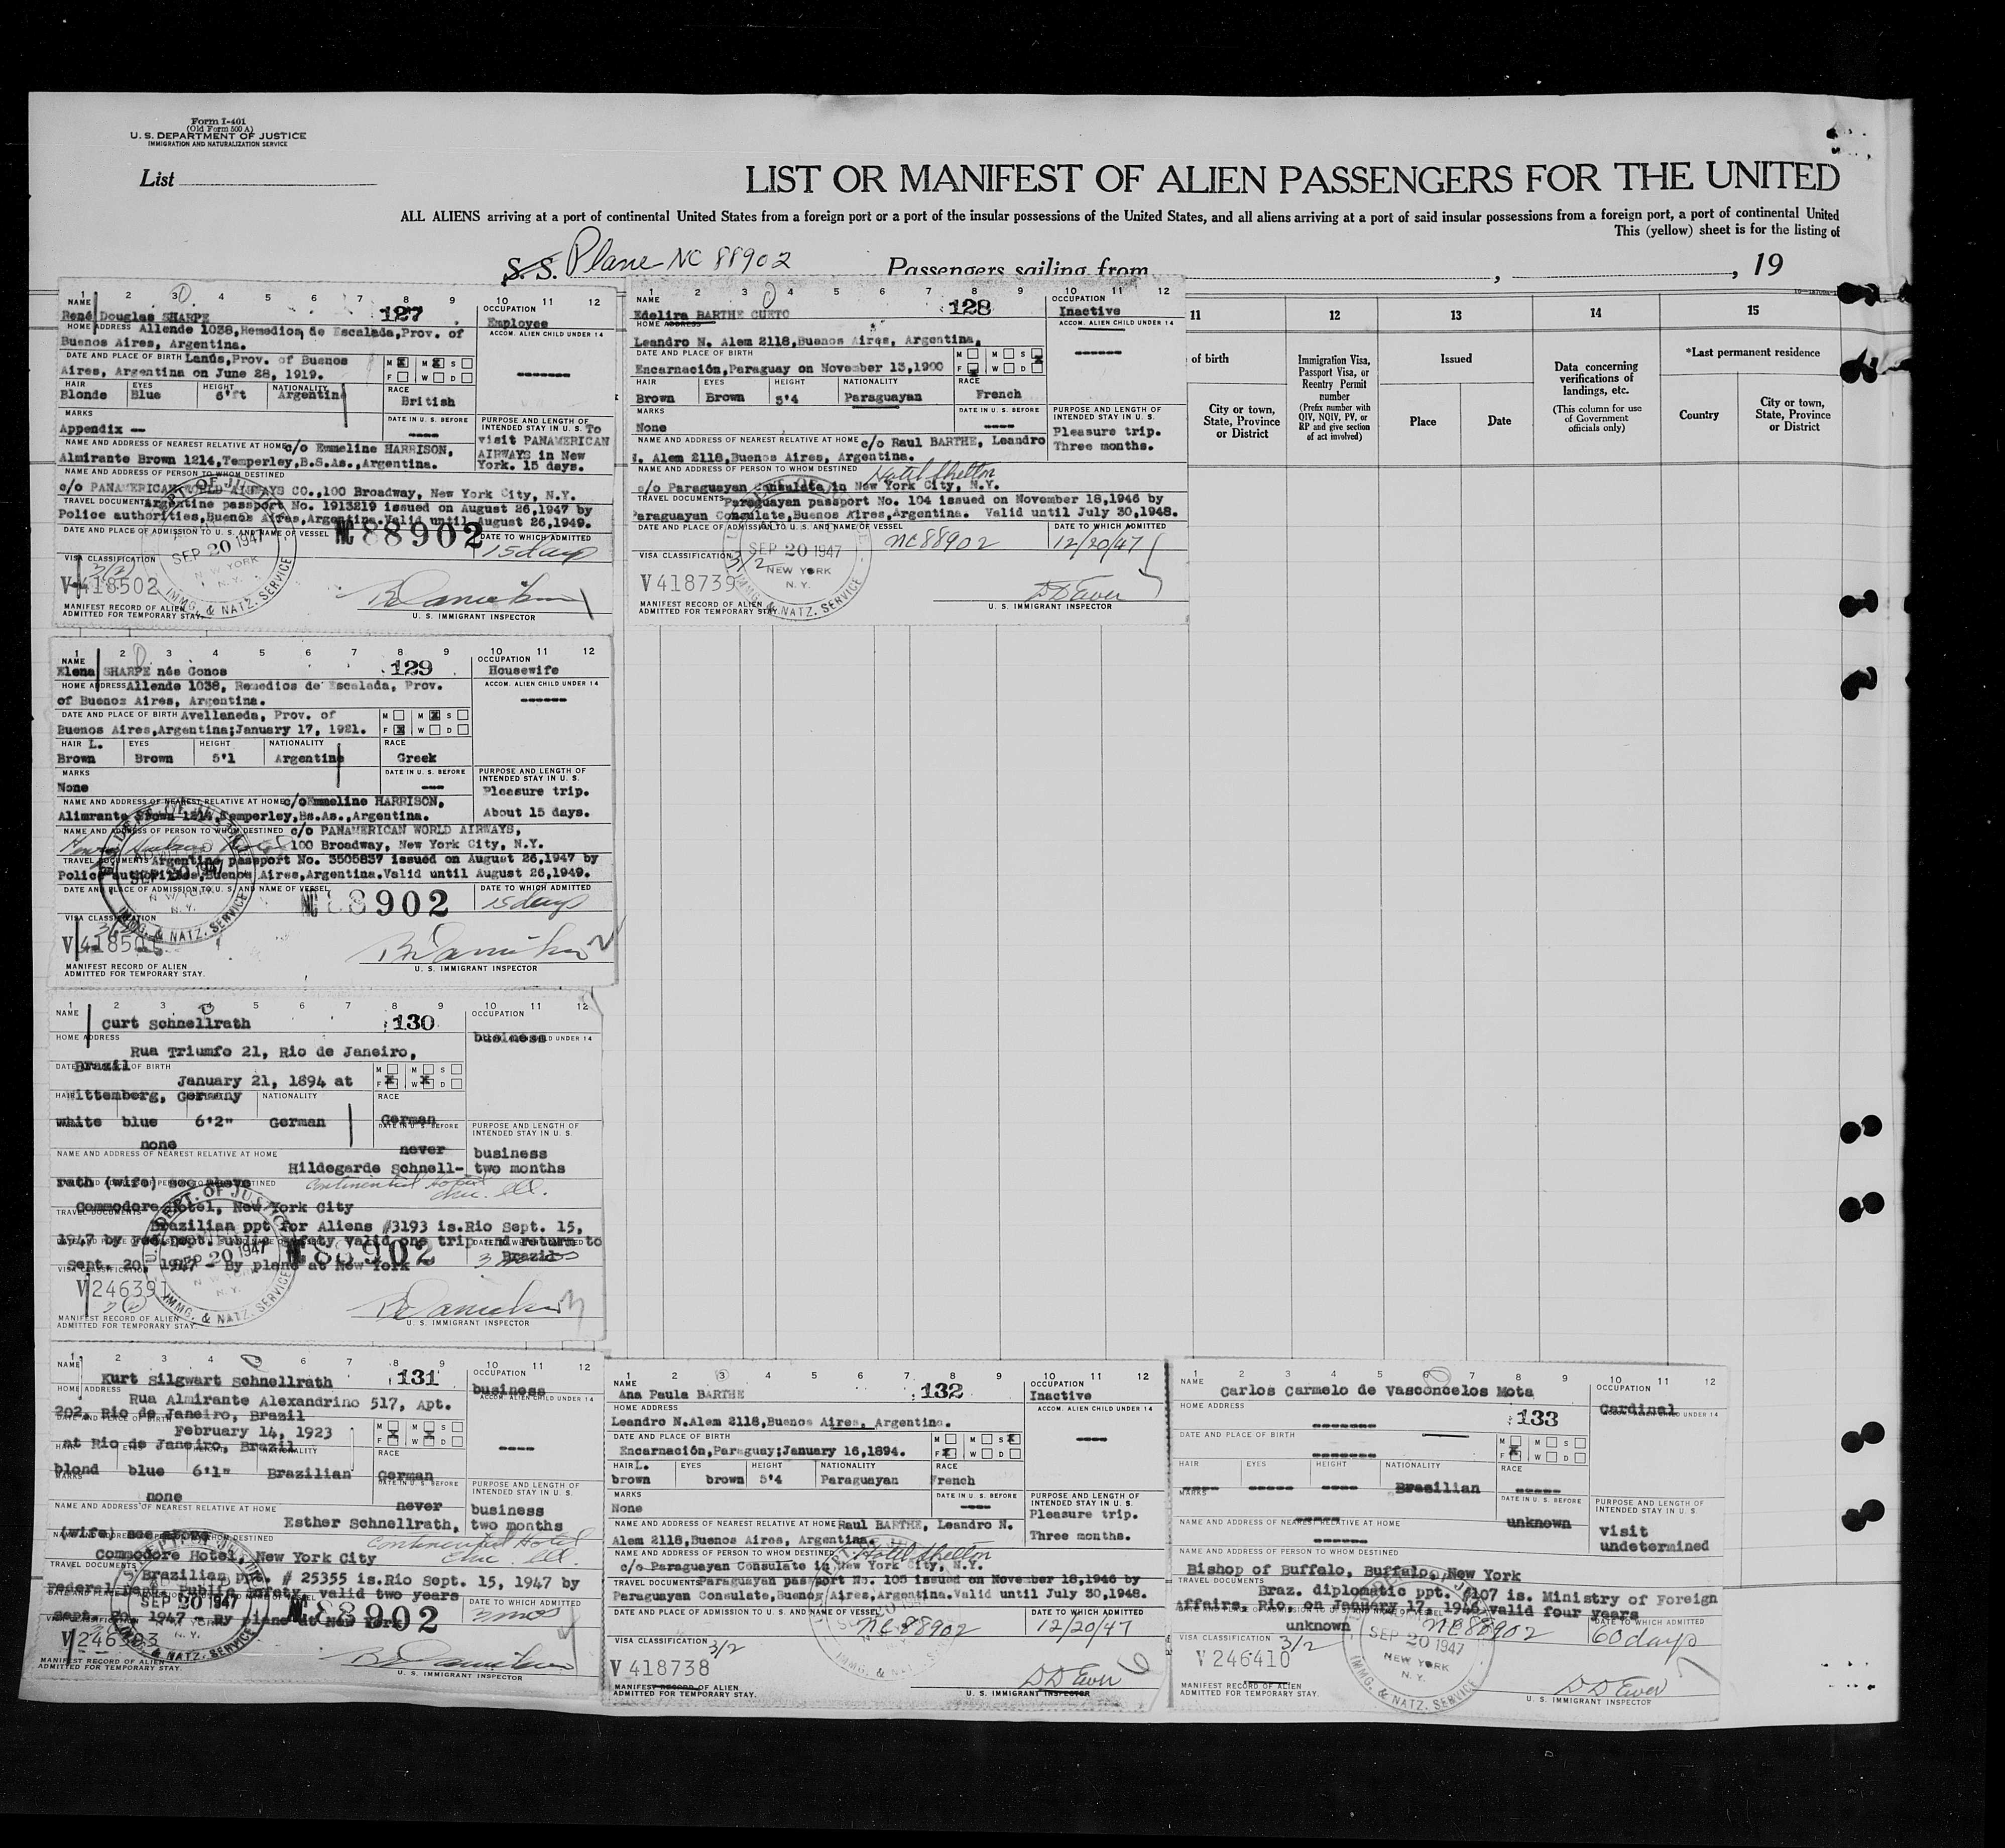 Form I-401
(Old Form 500 A)
U. S. DEPARTMENT OF JUSTICE
IMMIGRATION AND NATURALIZATION SERVICE
List
LIST OR MANIFEST OF ALIEN PASSENGERS FOR THE UNITED
ALL ALIENS arriving at a port of continental United States from a foreign port or a port of the insular possessions of the United States, and all aliens arriving at a port of said insular possessions from a foreign port, a port of continental United
This (yellow) sheet is for the listing of
S. S. Plane NC 88902 Passengers sailing from , , 19
1 2 3 4 5 6 7 8 9 10 11 12
NAME 127 OCCUPATION
René Douglas SHARPE Employee
HOME ADDRESS Allende 1038,Remedios de Escalada,Prov. of ACCOM. ALIEN CHILD UNDER 14
Buenos Aires, Argentina.
DATE AND PLACE OF BIRTH Lanús,Prov. of Buenos M X M X S
Aires, Argentina on June 28, 1919. F W D -------
HAIR EYES HEIGHT NATIONALITY RACE
Blonde Blue 6'ft Argentine British
MARKS DATE IN U. S. BEFORE PURPOSE AND LENGTH OF
Appendix -- ---- INTENDED STAY IN U. S. To
NAME AND ADDRESS OF NEAREST RELATIVE AT HOME c/o Emmeline HARRISON, visit PANAMERICAN
Almirante Brown 1214,Temperley,B.S.As.,Argentina. AIRWAYS in New
York. 15 days.
NAME AND ADDRESS OF PERSON TO WHOM DESTINED
c/o PANAMERICAN WORLD AIRWAYS CO.,100 Broadway, New York City, N.Y.
TRAVEL DOCUMENTS Argentine passport No. 1913219 issued on August 26,1947 by
Police authorities,Buenos Aires,Argentina.Valid until August 26,1949.
DATE AND PLACE OF ADMISSION TO U. S. AND NAME OF VESSEL NC88902 DATE TO WHICH ADMITTED
SEP 20 1947 15 days
VISA CLASSIFICATION 3/2 NEW YORK
V 418502 N. Y.
IMMG. & NATZ. SERVICE
MANIFEST RECORD OF ALIEN
ADMITTED FOR TEMPORARY STAY. U. S. IMMIGRANT INSPECTOR
1 2 3 4 5 6 7 8 9 10 11 12
NAME 128 OCCUPATION
Edelira BARTHE CUETO Inactive
HOME ADDRESS ACCOM. ALIEN CHILD UNDER 14
Leandro N. Alem 2118,Buenos Aires, Argentina,
DATE AND PLACE OF BIRTH M M S X ------
Encarnación,Paraguay on November 13,1900 F X W D
HAIR EYES HEIGHT NATIONALITY RACE
Brown Brown 5'4 Paraguayan French
MARKS DATE IN U. S. BEFORE PURPOSE AND LENGTH OF
None ---- INTENDED STAY IN U. S.
Pleasure trip.
NAME AND ADDRESS OF NEAREST RELATIVE AT HOME c/o Raul BARTHE, Leandro Three months.
N. Alem 2118,Buenos Aires, Argentina.
NAME AND ADDRESS OF PERSON TO WHOM DESTINED Hotel Shelton
c/o Paraguayan Consulate in New York City, N.Y.
TRAVEL DOCUMENTS Paraguayan passport No. 104 issued on November 18,1946 by
Paraguayan Consulate,Buenos Aires,Argentina. Valid until July 30,1948.
DATE AND PLACE OF ADMISSION TO U. S. AND NAME OF VESSEL DATE TO WHICH ADMITTED
SEP 20 1947 NC88902 12/20/47
VISA CLASSIFICATION 3/2 NEW YORK
V 418739 N. Y.
IMMG. & NATZ. SERVICE DD Ewer
MANIFEST RECORD OF ALIEN
ADMITTED FOR TEMPORARY STAY. U. S. IMMIGRANT INSPECTOR
11 12 13 14 15
of birth Immigration Visa, Passport Visa, or Reentry Permit number Issued Data concerning verifications of landings, etc. *Last permanent residence
City or town, State, Province or District (Prefix number with QIV, NQIV, PV, or RP and give section of act involved) Place Date (This column for use of Government officials only) Country City or town, State, Province or District
1 2 3 4 5 6 7 8 9 10 11 12
NAME 129 OCCUPATION
Elena SHARPE née Gonos Housewife
HOME ADDRESS Allende 1038, Remedios de Escalada, Prov. ACCOM. ALIEN CHILD UNDER 14
of Buenos Aires, Argentina. ------
DATE AND PLACE OF BIRTH Avellaneda, Prov. of M M X S
Buenos Aires,Argentina;January 17, 1921. F X W D
HAIR L. EYES HEIGHT NATIONALITY RACE
Brown Brown 5'1 Argentine Greek
MARKS DATE IN U. S. BEFORE PURPOSE AND LENGTH OF
None --- INTENDED STAY IN U. S.
Pleasure trip.
NAME AND ADDRESS OF NEAREST RELATIVE AT HOME c/o Emmeline HARRISON,
Alimrante Brown 1214,Temperley,Bs.As.,Argentina. About 15 days.
NAME AND ADDRESS OF PERSON TO WHOM DESTINED c/o PANAMERICAN WORLD AIRWAYS,
100 Broadway, New York City, N.Y.
TRAVEL DOCUMENTS Argentine passport No. 3505837 issued on August 26,1947 by
Police authorities,Buenos Aires,Argentina.Valid until August 26,1949.
DATE AND PLACE OF ADMISSION TO U. S. AND NAME OF VESSEL NC88902 DATE TO WHICH ADMITTED
SEP 20 1947 15 days
VISA CLASSIFICATION
IMMG. & NATZ. SERVICE
MANIFEST RECORD OF ALIEN
ADMITTED FOR TEMPORARY STAY. U. S. IMMIGRANT INSPECTOR
1 2 3 4 5 6 7 8 9 10 11 12
NAME 130 OCCUPATION
Curt Schnellrath
HOME ADDRESS business
Rua Triumfo 21, Rio de Janeiro,
Brazil
DATE AND PLACE OF BIRTH M M S
January 21, 1894 at F X W X D
Wittemberg, Germany NATIONALITY RACE
white blue 6'2" German German
DATE IN U. S. BEFORE PURPOSE AND LENGTH OF
none INTENDED STAY IN U. S.
NAME AND ADDRESS OF NEAREST RELATIVE AT HOME never business
Hildegarde Schnell- two months
rath (wife) see above Continental Hotel
Chic. Ill.
Commodore Hotel, New York City
TRAVEL DOCUMENTS
Brazilian ppt for Aliens #3193 is.Rio Sept. 15,
1947 by Fed.Dept.Public Safety valid one trip and return to
Brazil
NC88902 3 mos
Sept. 20, 1947 - By plane at New York
VISA CLASSIFICATION
V 246391
SEP 20 1947
IMMG. & NATZ. SERVICE
MANIFEST RECORD OF ALIEN
ADMITTED FOR TEMPORARY STAY. U. S. IMMIGRANT INSPECTOR
1 2 3 4 5 6 7 8 9 10 11 12
NAME 131 OCCUPATION
Kurt Silgwart Schnellrath business
HOME ADDRESS ACCOM. ALIEN CHILD UNDER 14
Rua Almirante Alexandrino 517, Apt.
202, Rio de Janeiro, Brazil
DATE AND PLACE OF BIRTH
February 14, 1923 M M S
at Rio de Janeiro, Brazil F W D ----
NATIONALITY RACE
blond blue 6'1" Brazilian German
MARKS DATE IN U. S. BEFORE PURPOSE AND LENGTH OF
none INTENDED STAY IN U. S.
NAME AND ADDRESS OF NEAREST RELATIVE AT HOME never business
Esther Schnellrath, two months
(wife) see above Continental Hotel
Chic. Ill.
Commodore Hotel, New York City
TRAVEL DOCUMENTS
Brazilian ppt. # 25355 is.Rio Sept. 15, 1947 by
Federal Dept. Public Safety, valid two years
SEP 20 1947 NC88902 DATE TO WHICH ADMITTED
Sept. 20, 1947 - By plane at New York 3 mos
IMMG. & NATZ. SERVICE
MANIFEST RECORD OF ALIEN
ADMITTED FOR TEMPORARY STAY. U. S. IMMIGRANT INSPECTOR
1 2 3 4 5 6 7 8 9 10 11 12
NAME 132 OCCUPATION
Ana Paula BARTHE Inactive
HOME ADDRESS ACCOM. ALIEN CHILD UNDER 14
Leandro N.Alem 2118,Buenos Aires, Argentina.
DATE AND PLACE OF BIRTH M M S X ----
Encarnación,Paraguay;January 16,1894. F X W D
HAIR L. EYES HEIGHT NATIONALITY RACE
brown brown 5'4 Paraguayan French
MARKS DATE IN U. S. BEFORE PURPOSE AND LENGTH OF
None ---- INTENDED STAY IN U. S.
Pleasure trip.
NAME AND ADDRESS OF NEAREST RELATIVE AT HOME Raul BARTHE, Leandro N.
Alem 2118,Buenos Aires, Argentina. Three months.
NAME AND ADDRESS OF PERSON TO WHOM DESTINED Hotel Shelton
c/o Paraguayan Consulate in New York City, N.Y.
TRAVEL DOCUMENTS Paraguayan passport No. 105 issued on November 18,1946 by
Paraguayan Consulate,Buenos Aires,Argentina.Valid until July 30,1948.
DATE AND PLACE OF ADMISSION TO U. S. AND NAME OF VESSEL DATE TO WHICH ADMITTED
NC88902 12/20/47
VISA CLASSIFICATION 3/2
V 418738
DD Ewer
MANIFEST RECORD OF ALIEN
ADMITTED FOR TEMPORARY STAY. U. S. IMMIGRANT INSPECTOR
1 2 3 4 5 6 7 8 9 10 11 12
NAME OCCUPATION
Carlos Carmelo de Vasconcelos Mota
HOME ADDRESS 133 Cardinal
-------
DATE AND PLACE OF BIRTH M M S
------- F W D
HAIR EYES HEIGHT NATIONALITY RACE
---- ---- ---- Brazilian -----
MARKS DATE IN U. S. BEFORE PURPOSE AND LENGTH OF
INTENDED STAY IN U. S.
NAME AND ADDRESS OF NEAREST RELATIVE AT HOME unknown visit
undetermined
NAME AND ADDRESS OF PERSON TO WHOM DESTINED
Bishop of Buffalo, Buffalo, New York
TRAVEL DOCUMENTS
Braz. diplomatic ppt. #107 is. Ministry of Foreign
Affairs, Rio, on January 17, 1946 valid four years
DATE TO WHICH ADMITTED
unknown NC88902 60 days
VISA CLASSIFICATION 3/2 SEP 20 1947
V 246410 NEW YORK
N. Y.
IMMG. & NATZ. SERVICE DD Ewer
MANIFEST RECORD OF ALIEN
ADMITTED FOR TEMPORARY STAY. U. S. IMMIGRANT INSPECTOR